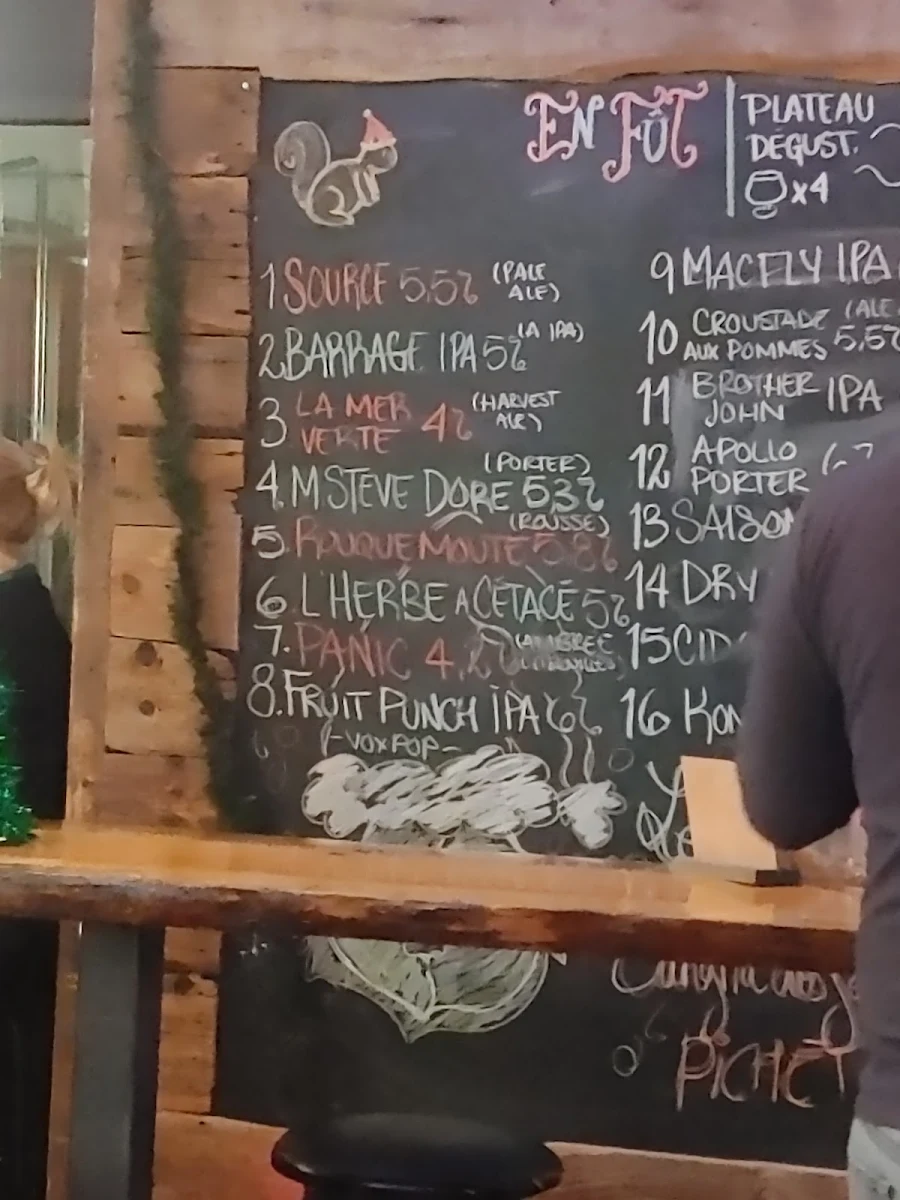 EN FÛT
PLATEAU
DÉGUST.
x4
1 SOURCE 5,5% (PALE
ALE)
2. BARRAGE IPA 5% (A IPA)
3 LA MER
VERTE 4% (HARVEST
ALE)
4. M STEVE DORE 5,3% (PORTER)
5. ROUQUEMOUTE 5.8% (ROUSSE)
6. L'HERBE A CÉTACÉ 5%
7. PANIC 4,
8. FRUIT PUNCH IPA 6%
-VOX POP-
9 MACFLY IPA
10 CROUSTADE (ALE
AUX POMMES 5,5%
11 BROTHER
JOHN IPA
12 APOLLO
PORTER
13 SAISON
14 DRY
15 CID
16 KOM
PICHET